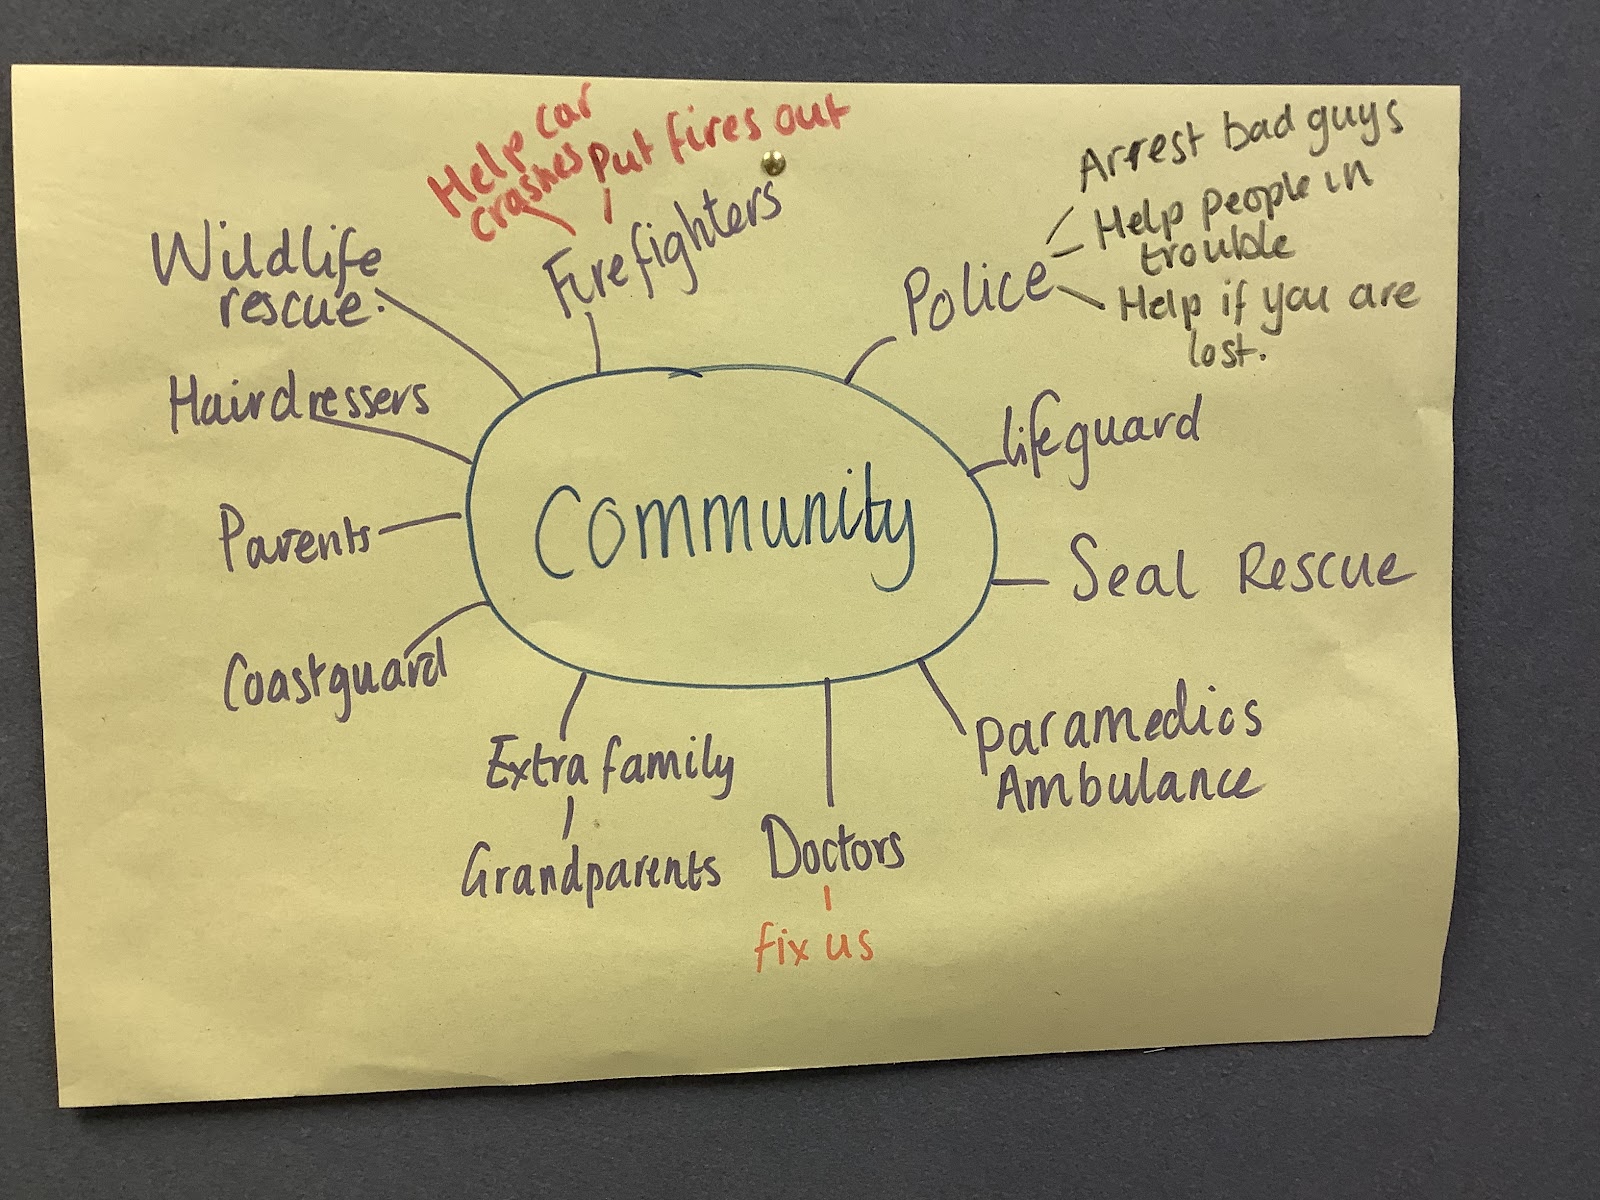 Community
Help car
crashes
Put fires out
Firefighters
Police
Arrest bad guys
Help people in
trouble
Help if you are
lost.
lifeguard
Seal Rescue
paramedics
Ambulance
Doctors
fix us
Extra family
Grandparents
Coastguard
Parents
Hairdressers
Wildlife
rescue.